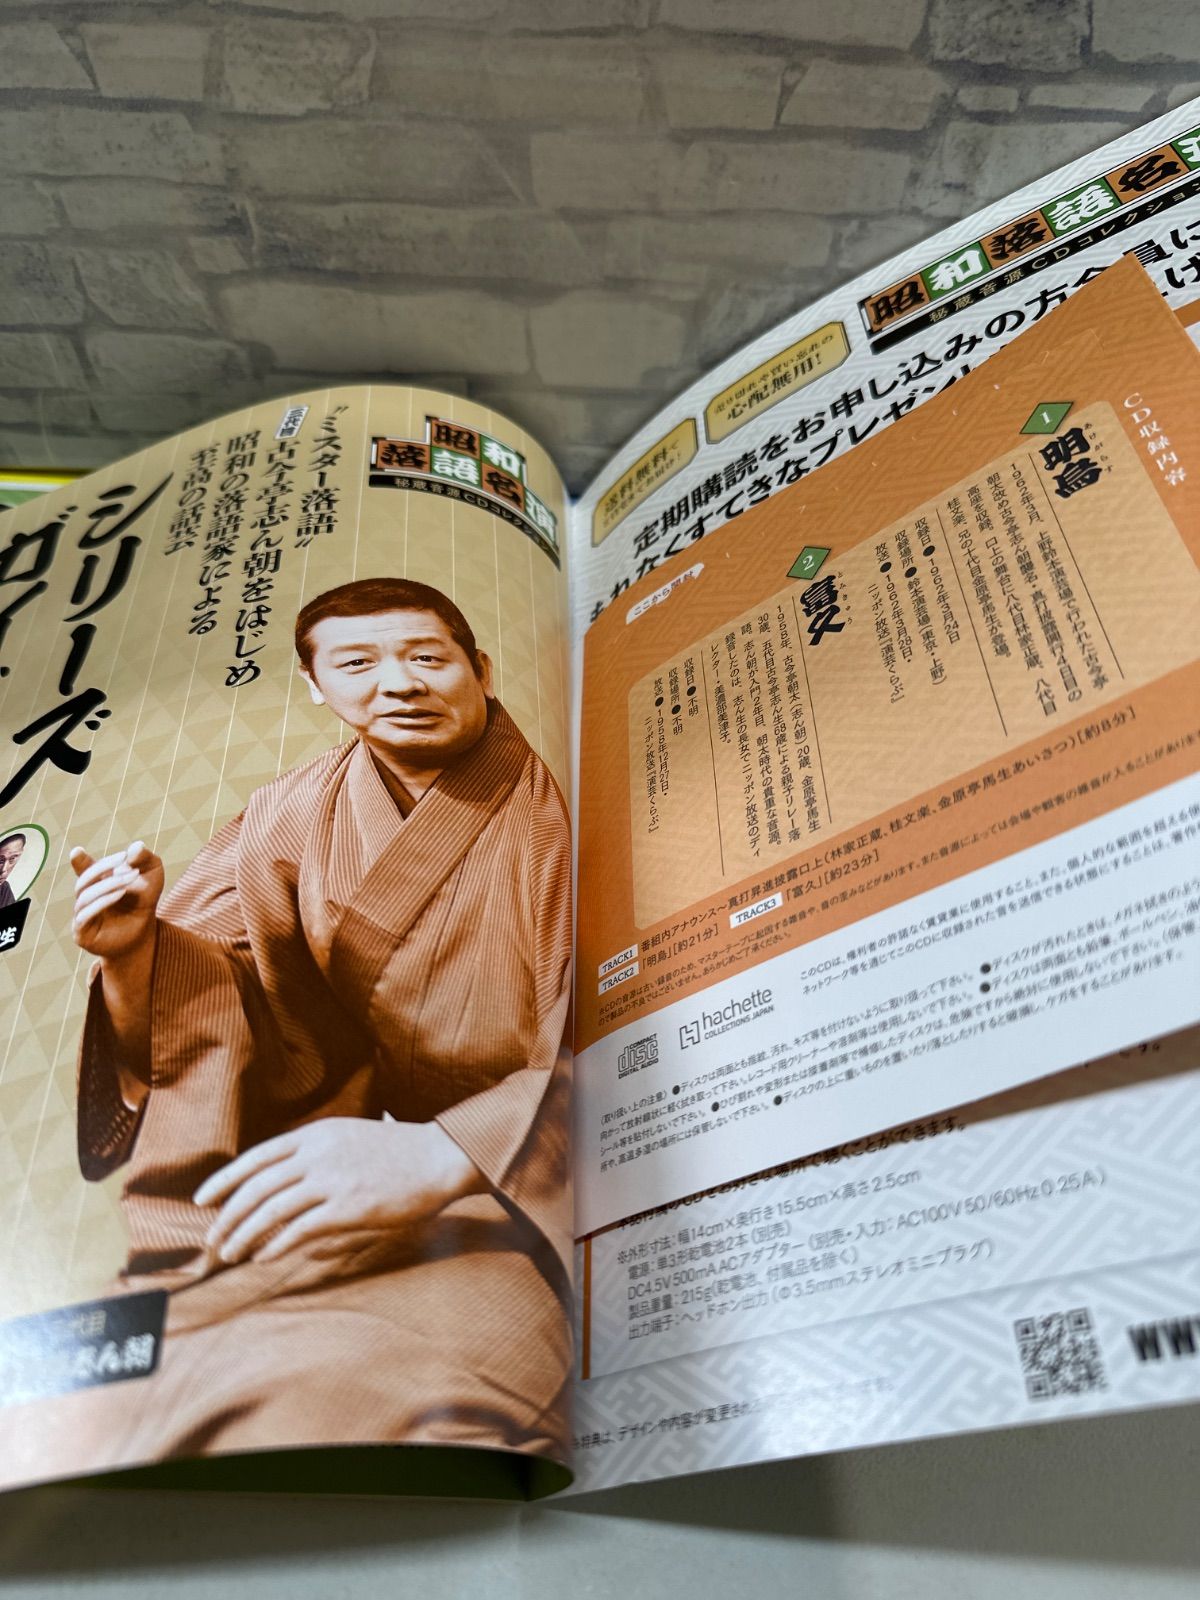 昭和
落語名演
秘蔵音源CDコレクション
"ミスター落語"
三代目 古今亭志ん朝をはじめ
昭和の落語家による
至高の話芸
シリーズ
昭和落語名
秘蔵音源CDコレクション
売り切れや買い忘れの
心配無用!
送料無料で
定期購読をお申し込みの方
もれなくすてきなプレゼント
CD収録内容
ここから開封
1 明烏
あけがらす
1962年3月、上野鈴本演芸場で行われた古今亭
朝太改め古今亭志ん朝襲名・真打披露興行4日目の
高座を収録。口上の舞台に八代目林家正蔵、八代目
桂文楽、兄の十代目金原亭馬生が登場。
収録日●1962年3月24日
収録場所●鈴本演芸場(東京・上野)
放送●1962年3月28日・
ニッポン放送『演芸くらぶ』
2 富久
とみきゅう
1958年、古今亭朝太(志ん朝)20歳、金原亭馬生
30歳、五代目古今亭志ん生68歳による親子リレー落
語。志ん朝が入門2年目、朝太時代の貴重な音源。
録音したのは、志ん生の長女でニッポン放送のディ
レクター・美濃部美津子。
収録日●不明
収録場所●不明
放送●1958年12月27日・
ニッポン放送『演芸くらぶ』
TRACK1 番組内アナウンス〜真打昇進披露口上(林家正蔵、桂文楽、金原亭馬生あいさつ)[約8分]
TRACK2 「明烏」[約21分] TRACK3 「富久」[約23分]
※CDの音源は古い録音のため、マスターテープに起因する雑音や、音の歪みなどがあります。また音源によっては会場や観客の雑音が入ることがあります
ので製品の不良ではございません。あらかじめご了承ください。
COMPACT
disc
DIGITAL AUDIO
hachette
COLLECTIONS JAPAN
このCDは、権利者の許諾なく賃貸業に使用すること、また、個人的な範囲を超える
ネットワーク等を通じてこのCDに収録された音を送信できる状態にすることは、著作
(取り扱い上の注意) ●ディスクは両面とも指紋、汚れ、キズ等を付けないように取り扱って下さい。●ディスクが汚れたときは、メガネ拭きのような
向かって放射線状に軽く拭き取って下さい。レコード用クリーナーや溶剤等は使用しないで下さい。●ディスクは両面とも鉛筆、ボールペン、油
シール等を貼付しないで下さい。●ひび割れや変形または接着剤等で補修したディスクは、危険ですから絶対に使用しないで下さい。(保管
所や、高温多湿の場所には保管しないで下さい。●ディスクの上に重いものを置いたり落としたりすると破損し、ケガをすることがあります。
好きな場所で聴くことができます。
※外形寸法:幅14cm×奥行き15.5cm×高さ2.5cm
電源:単3形乾電池2本(別売)
DC4.5V 500mA ACアダプター(別売・入力:AC100V 50/60Hz 0.25A)
製品重量:215g(乾電池、付属品を除く)
出力端子:ヘッドホン出力(Φ3.5mmステレオミニプラグ)
WWW
特典は、デザインや内容が変更され